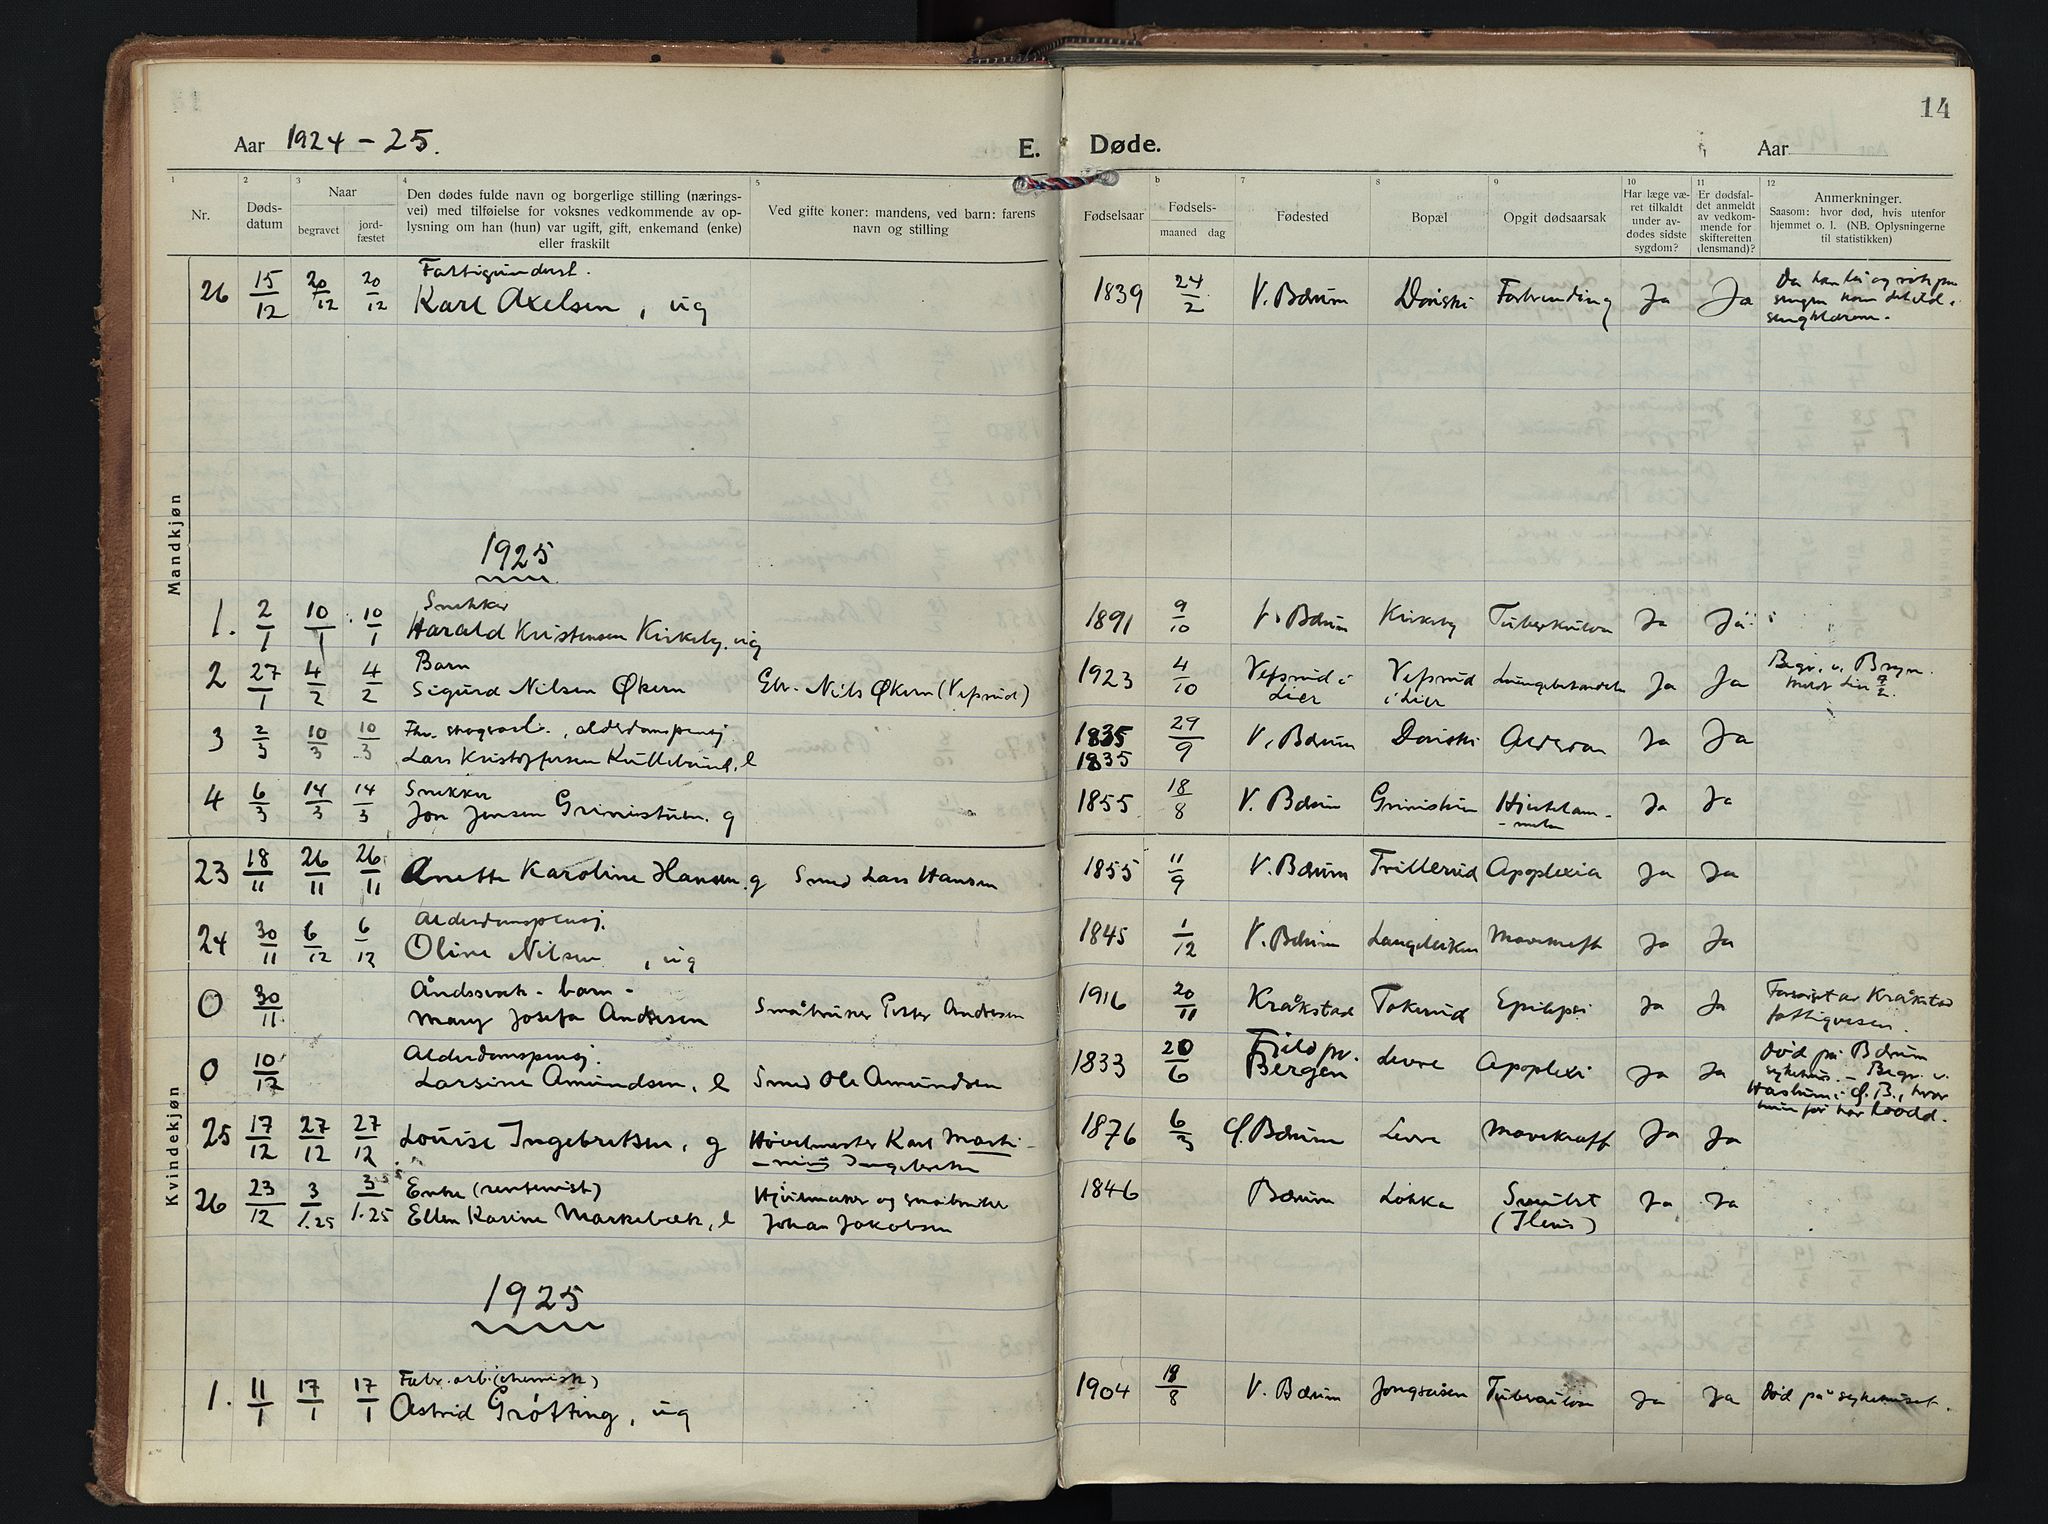 14
Aar 1924 - 25.
E. Døde.
Aar
1 2 3 4 5 6 7 8 9 10 11 12
Nr.
Døds-
datum
Naar
begravet
jord-
fæstet
Den dødes fulde navn og borgerlige stilling (nærings-
vei) med tilføielse for voksnes vedkommende av op-
lysning om han (hun) var ugift, gift, enkemand (enke)
eller fraskilt
Ved gifte koner: mandens, ved barn: farens
navn og stilling
Fødselsaar
Fødsels-
maaned dag
Fødested
Bopæl
Opgit dødsaarsak
Har læge væ-
ret tilkaldt
under av-
dødes sidste
sygdom?
Er dødsfal-
det anmeldt
av vedkom-
mende for
skifteretten
(lensmand)?
Anmerkninger.
Saasom: hvor død, hvis utenfor
hjemmet o. l. (NB. Oplysningerne
til statistikken)
Mandkjøn
Fattigunderst.
26 15/12 20/12 20/12 Karl Axelsen, ug 1839 24/2 V. Bærum Dæliski Forbrending Ja Ja
1925
Snekker
1. 2/1 10/1 10/1 Harald Kristensen Kirkeby, ug 1891 9/10 V. Bærum Kirkeby Tuberkulose Ja Ja
Barn
2 27/1 4/2 4/2 Sigurd Nilsen Økern Gbr. Nils Økern (Vefsrud) 1923 4/10 Vefsrud i Lier Vefsrud i Lier Lungebetendelse Ja Ja
Fhv. skogsarb., alderdomspensj.
3 2/3 10/3 10/3 Lars Kristoffersen Kullebund, e 1835 29/9 V. Bærum Dæliski Alderdom Ja Ja
1835
Snekker
4 6/3 14/3 14/3 Jon Jensen Grinistuen, g 1855 18/8 V. Bærum Grinistuen Ja Ja
Kvindekjøn
23 18/11 26/11 26/11 Anette Karoline Hansen, g Smed Lars Hansen 1855 11/9 V. Bærum Trillerud Apoplexia Ja Ja
Alderdomspensj.
24 30/11 6/12 6/12 Oline Nilsen, ug 1845 1/12 V. Bærum Mavekræft Ja Ja
Åndssvak - barn -
0 30/11 Mary Josefa Andresen Småbruker Petter Andresen 1916 20/11 Kråkstad Tokerud Epilepsi Ja Ja Forsørget av Kråkstad
fattigvesen.
Alderdomspensj.
0 10/12 Larsine Amundsen, e Smed Ole Amundsen 1833 20/6 Fjeld pr. Bergen Levre Apoplexi Ja Ja Død på Bærum
sykehus. - Begr. v.
Haslum i Ø. B., hvor
hun før har bodd.
25 17/12 27/12 27/12 Louise Ingebretsen, g Høvelmester Karl Marti-
nius Ingebretsen 1876 6/3 Ø. Bærum Levre Mavekræft Ja Ja
Enke (rentenist)
26 23/12 3/1.25 3/1.25 Ellen Karine Markebæk, e Hjulmaker og småbruker
Johan Jakobsen 1846 Bærum Løkka (Ileus) Ja Ja
1925
Fabr. arb. (chemisk)
1. 11/1 17/1 17/1 Astrid Grøtting, ug 1904 18/8 V. Bærum Jongsåsen Tuberkulose Ja Ja Død på sykehuset.